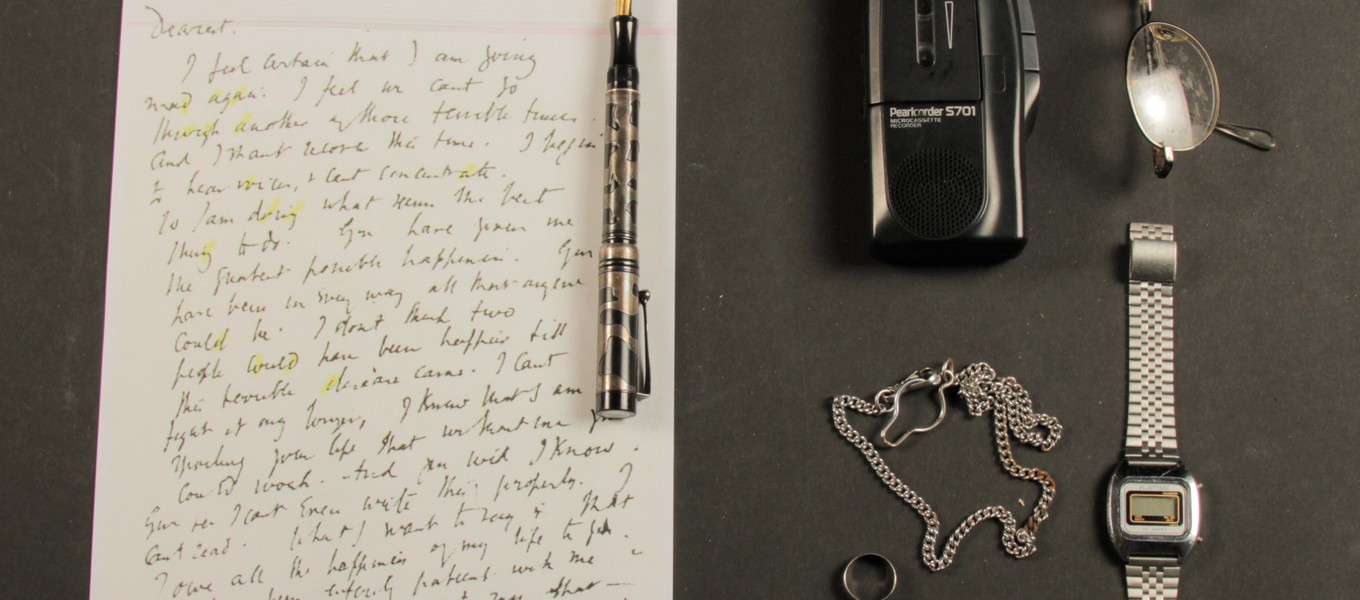 Dearest.
I feel certain that I am going
mad again. I feel we cant go
through another of those terrible times.
And I shant recover this time. I begin
to hear voices, & cant concentrate.
So I am doing what seems the best
thing to do. You have given me
the greatest possible happiness. You
have been in every way all that anyone
could be. I dont think two
people could have been happier till
this terrible disease came. I cant
fight it any longer, I know that I am
spoiling your life that without me you
could work. And you will I know.
You see I cant even write this properly. I
cant read. What I want to say is that
I owe all the happiness of my life to you.
been entirely patient with me
Pearlcorder S701
MICROCASSETTE
RECORDER